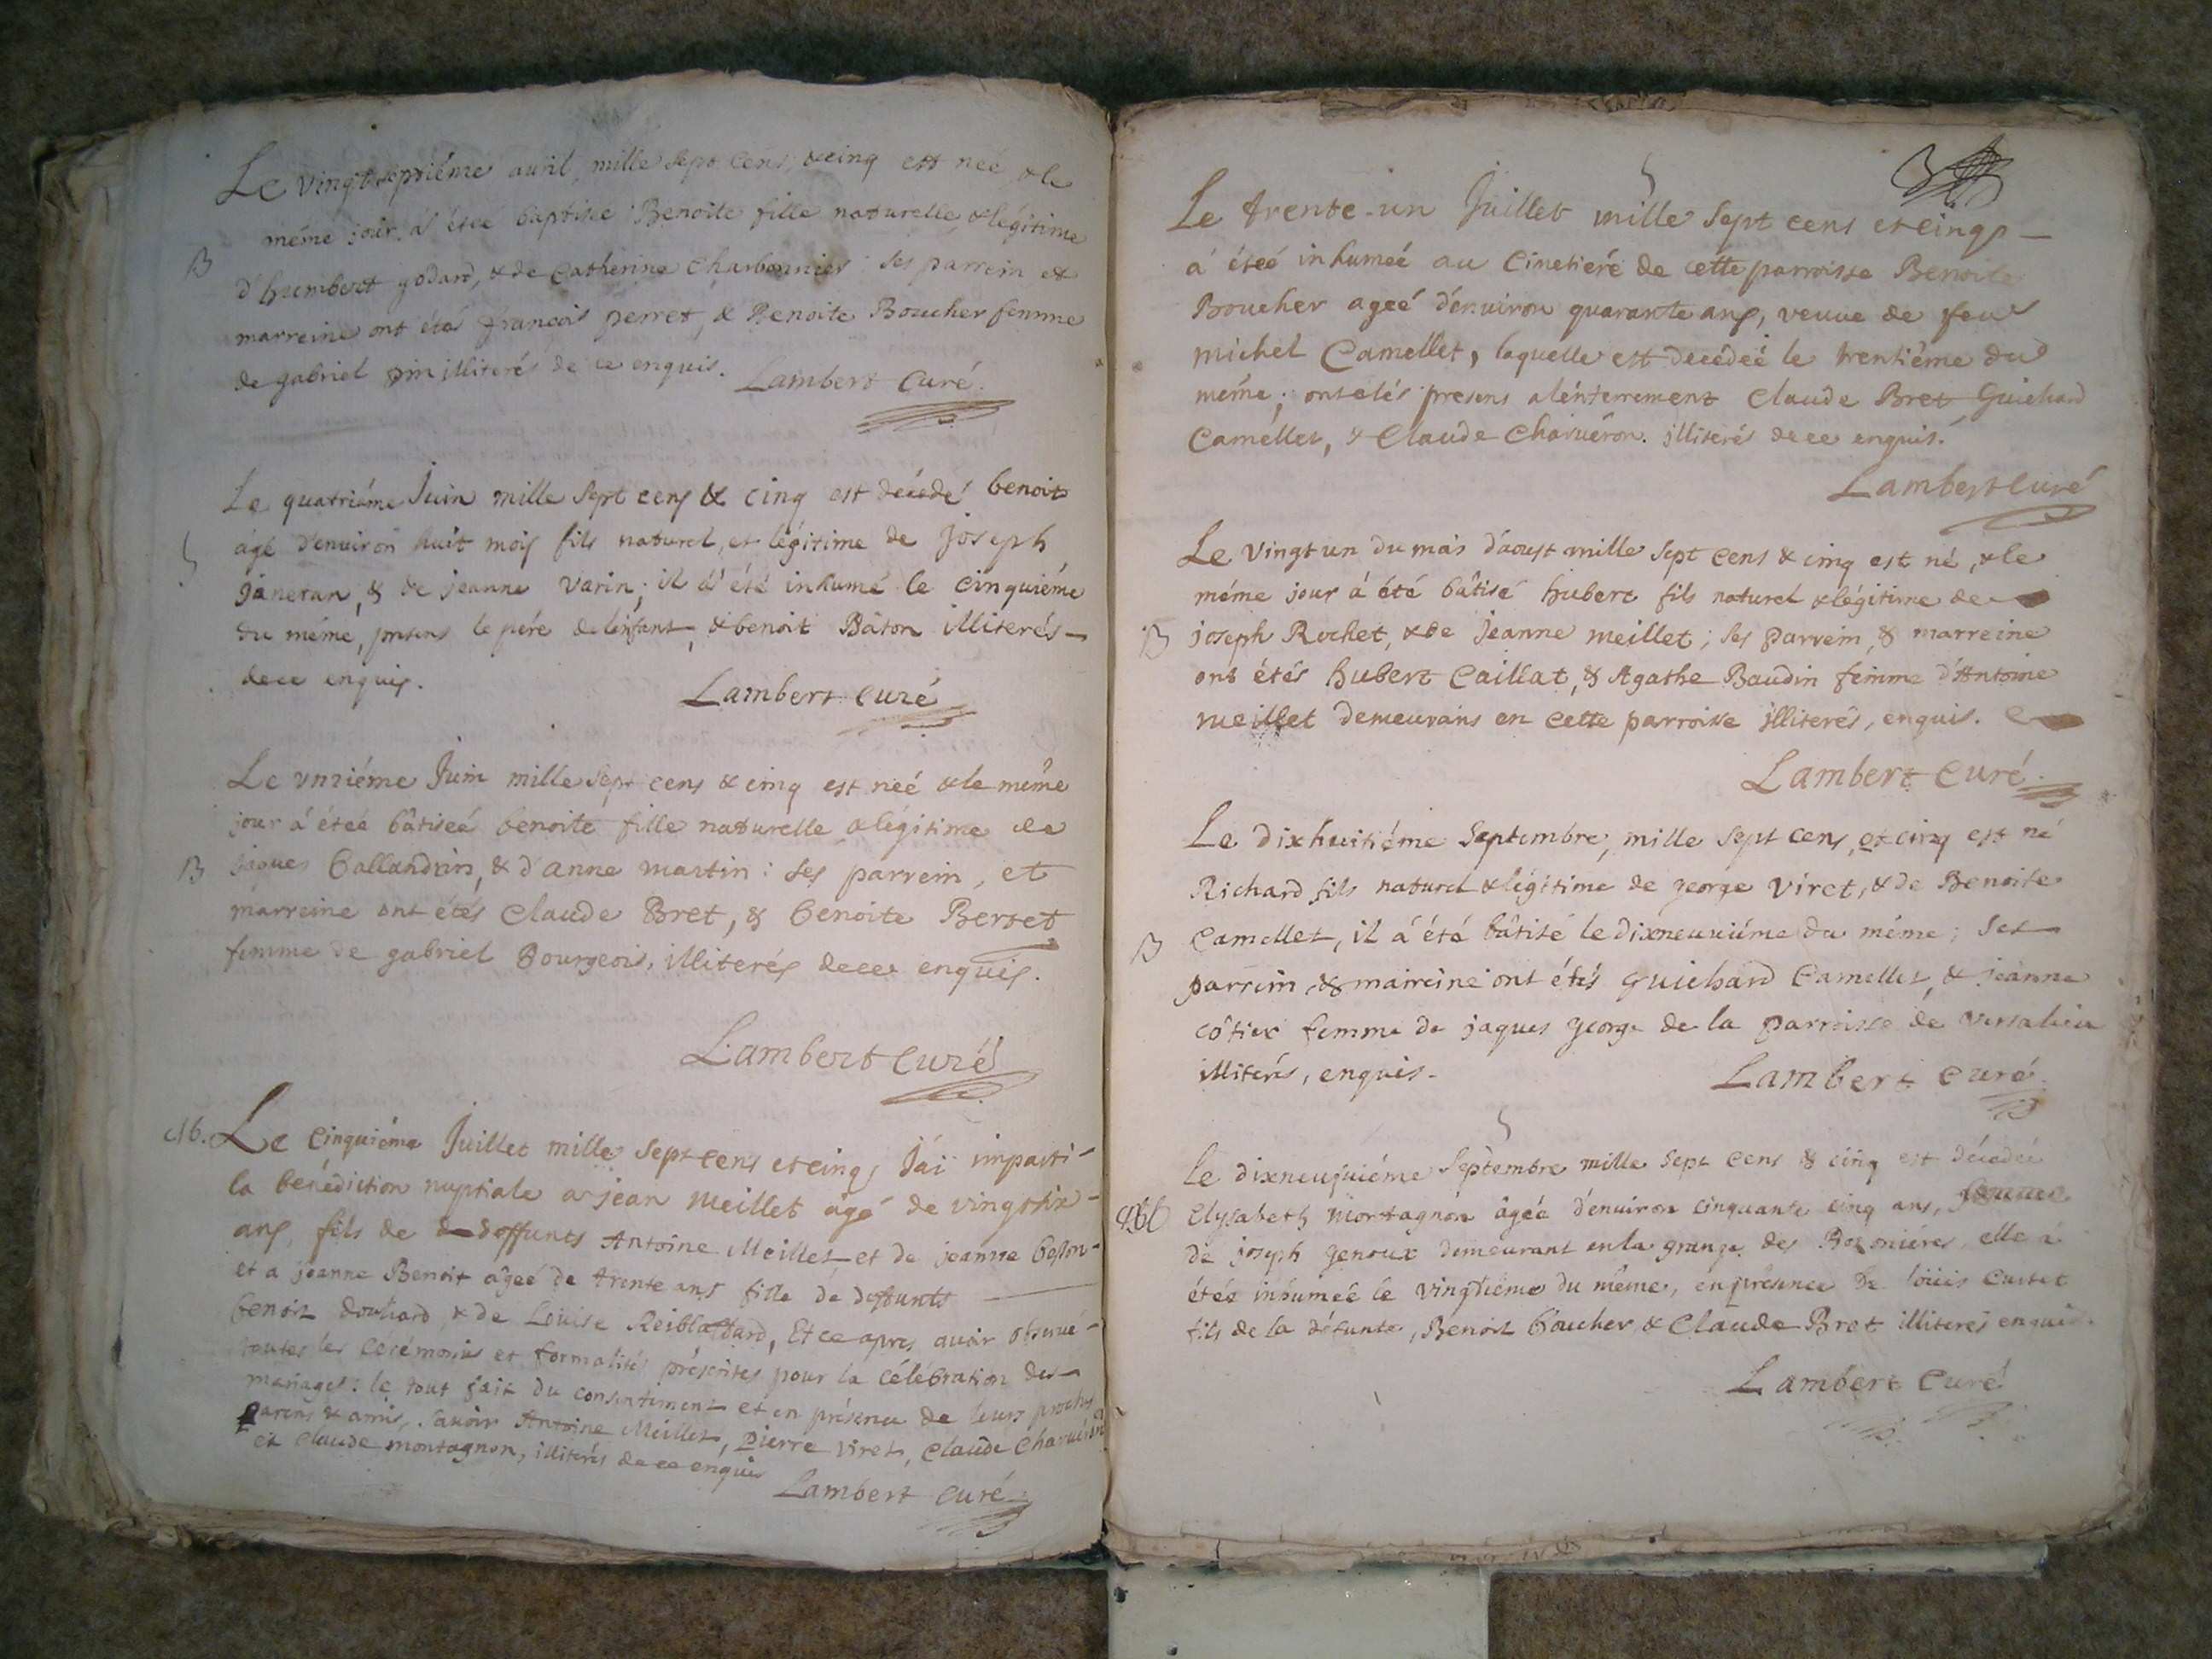 Le vingtseptiéme auril, mille sept cens & cinq est neé, & le
méme jour á éteé baptisee Benoite fille naturelle, & légitime
B
d'humbert godard, & de Catherine Charbonnier: ses parrein et
marreine ont étés françois perret, & Benoite Boucher femme
de gabriel pin illiterés de ce enquis. Lambert Curé.
Le quatriéme Juin mille sept cens & cinq est décedé benoit
agé d'enuiron huit mois fils naturel, et légitime de Joseph
janeran, & de jeanne Varin; il á été inhumé le cinquiéme
du méme, presens le pére de l'enfant, & benoit Bâton illiterés
de ce enquis.
Lambert Curé
Le vnziéme Juin mille sept cens & cinq est neé & le méme
jour á éteé bâtiseé benoite fille naturelle & légitime de
B jaques Gallandrin, & d'anne martin: ses parrein, et
marreine ont étés Claude Bret, & benoite Berset
femme de gabriel Bourgeois, illiterés de ce enquis.
Lambert Curé
M. Le Cinquiéme Juillet mille sept cens et cinq, J'ai imparti
la benédiction nuptiale a jean Meillet âgé de vingt six
ans, fils de deffunts Antoine Meillet et de jeanne
et a jeanne Benoit âgeé de trente ans fille de deffunts
benoit & de Louise Et ce apres auoir obserué
toutes les Cerémonies et formalités préscrites pour la célébration des
mariages: le tout fait du consentiment et en présence de leurs proches
parens & amis, sauoir Antoine Meillet, Pierre Viret, Claude Charuéron
et Claude montagnon, illiterés de ce enquis
Lambert Curé
Le trente-un Juillet mille sept cens et cinq
á éteé inhumeé au Cimetieré de cette parroisse Benoite
Boucher ageé d'enuiron quarante ans, veuue de feu
michel Camellet, laquelle est decédeé le trentiéme du
méme; ont etés presens a l'énterrement Claude Bret, Guichard
Camellet, & Claude Charuéron. illiterés de ce enquis.
Lambert Curé
Le Vingt un du mois d'aoust mille sept cens & cinq est né, & le
méme jour á été bâtisé hubert fils naturel & légitime de
B joseph Rochet, & de jeanne meillet; ses parrein, & marreine
ont étés hubert Caillat, & Agathe Baudin femme d'Antoine
meillet demeurans en cette parroisse illiterés, enquis.
Lambert Curé
Le dixhuitiéme Septembre, mille sept cens, et cinq est né
Richard fils naturel & légitime de george Viret, & de Benoite
B Camellet, il á été bâtisé le dixneuuiéme du méme; Ses
parrein, & marreine ont étés guichard Camellet, & jeanne
côtier femme de jaques george de la parroisse de Versalieu
illiterés, enquis.
Lambert Curé
Le dixneuuiéme Septembre mille sept cens & cinq est décedeé
Elysabeth Montagnon âgéé d'enuiron cinquante cinq ans,
de joseph genoux demeurant en la grange des elle á
étéé inhumeé le vingtiéme du méme, en présence de loüis Curtet
fils de la défunte, Benoit Boucher, & Claude Bret illiterés enquis.
Lambert Curé